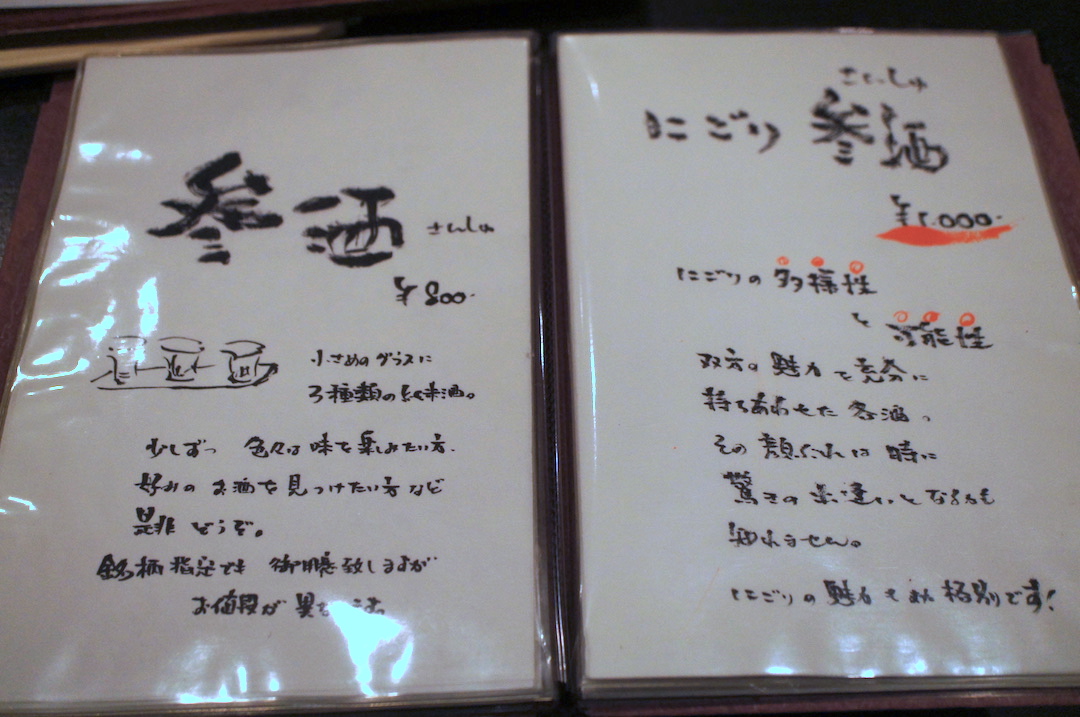 参酒 さんしゅ
¥800.
小さめのグラスに
3種類の純米酒。
少しずつ 色々な味を楽しみたい方、
好みのお酒を見つけたい方など
是非 どうぞ。
銘柄指定でも 御用意致しますが
お値段が異なります
さんしゅ
にごり 参酒
¥1,000.
にごりの多様性
と
可能性
双方の魅力を充分に
持ちあわせた各酒。
その顔ぶれは時に
驚きの出逢いとなるかも
知れません。
にごりの魅力もまた格別です!